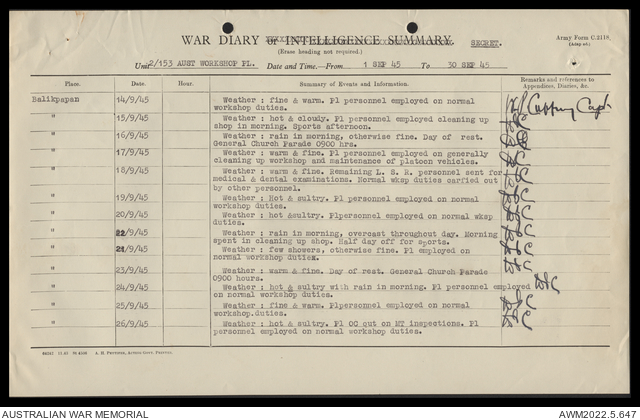 WAR DIARY or INTELLIGENCE SUMMARY. SECRET.
Army Form C.2118.
(Erase heading not required.)
Unit 2/153 AUST WORKSHOP PL. Date and Time.—From 1 SEP 45 To 30 SEP 45
Place. Date. Hour. Summary of Events and Information. Remarks and references to
Appendices, Diaries, &c.
Balikpapan 14/9/45 Weather : fine & warm. Pl personnel employed on normal
workshop duties.
" 15/9/45 Weather : hot & cloudy. Pl personnel employed cleaning up
shop in morning. Sports afternoon.
" 16/9/45 Weather : rain in morning, otherwise fine. Day of rest.
General Church Parade 0900 hrs.
" 17/9/45 Weather : warm & fine. Pl personnel employed on generally
cleaning up workshop and maintenance of platoon vehicles.
" 18/9/45 Weather : warm & fine. Remaining L. S. R. personnel sent for
medical & dental examinations. Normal wksp duties carried out
by other personnel.
" 19/9/45 Weather : Hot & sultry. Pl personnel employed on normal
workshop duties.
" 20/9/45 Weather : hot &sultry. Plpersonnel employed on normal wksp
duties.
" 22/9/45 Weather : rain in morning, overcast throughout day. Morning
spent in cleaning up shop. Half day off for sports.
" 21/9/45 Weather : few showers, otherwise fine. Pl employed on
normal workshop duties.
" 23/9/45 Weather : warm & fine. Day of rest. General Church Parade
0900 hours.
" 24/9/45 Weather : hot & sultry with rain in morning. Pl personnel employed
on normal workshop duties.
" 25/9/45 Weather : fine & warm. Plpersonnel employed on normal
workshop.duties.
" 26/9/45 Weather : hot & sultry. Pl OC out on MT inspections. Pl
personnel employed on normal workshop duties.
AUSTRALIAN WAR MEMORIAL
AWM2022.5.647